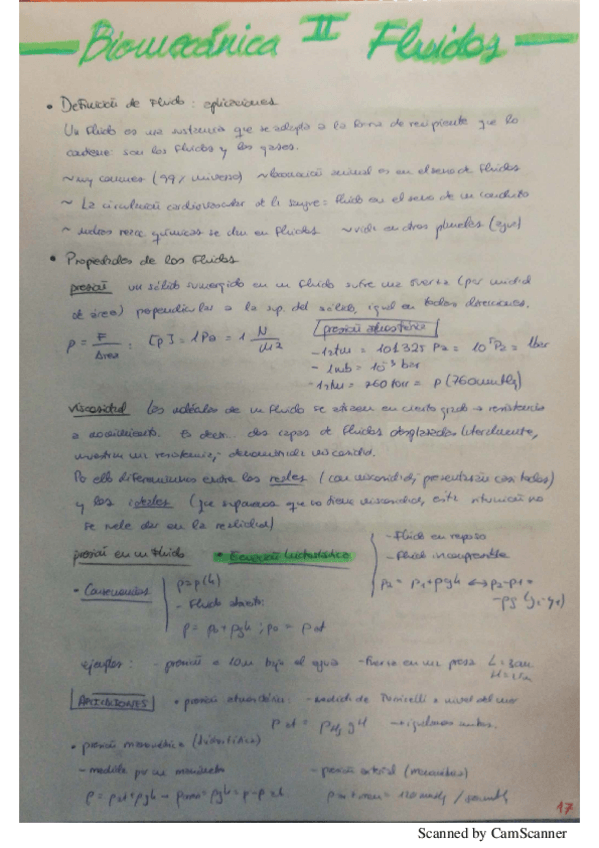 Biomecánica II Fluidos
• Definición de Fluido: aplicaciones
Un Fluido es una sustancia que se adapta a la forma de recipiente que lo
contiene: son los Fluidos y los gases.
~ muy comunes (99% universo) ~ locomoción animal es en el seno de Fluidos
~ La circulación cardiovascular de la sangre: Fluido en el seno de un conducto
~ químicas se dan en Fluidos ~ vida en otros planetas (agua)
• Propiedades de los Fluidos
presión un sólido sumergido en un Fluido sufre una fuerza (por unidad
de área) perpendicular a la sup. del sólido, igual en todas direcciones.
p = F / Área : [p] = 1 Pa = 1 N / m²
presión atmosférica
- 1 atm = 101325 Pa = 10⁵ Pa = 1 bar
- 1 mb = 10⁻³ bar
- 1 atm = 760 torr = p (760 mmHg)
viscosidad Las moléculas de un Fluido se atraen en cierto grado → resistencia
a movimiento. Es decir, dos capas de Fluidos desplazadas lateralmente,
muestran una resistencia, denominada viscosidad.
Por ello diferenciamos entre los reales (con viscosidad, presentarán casi todos)
y los ideales (que suponemos que no tiene viscosidad, esta situación no
se suele dar en la realidad)
presión en un Fluido • Ecuación hidrostática
- Fluido en reposo
- Fluido incompresible
p₂ = p₁ + ρgh ↔ p₂ - p₁ =
-ρg (y₂ - y₁)
• Consecuencias
p = p(h)
- Fluido abierto:
p = p₀ + ρgh ; p₀ = p at
ejemplos: - presión a 10m bajo el agua - Fuerza en una presa
APLICACIONES • presión atmosférica: - medida de Torricelli a nivel del mar
p at = ρHg gH
• presión manométrica (hidrostática)
- medida por un manómetro - presión arterial (manómetro)
p = p at + ρgh → p man = ρgh = p - p at
17
Scanned by CamScanner